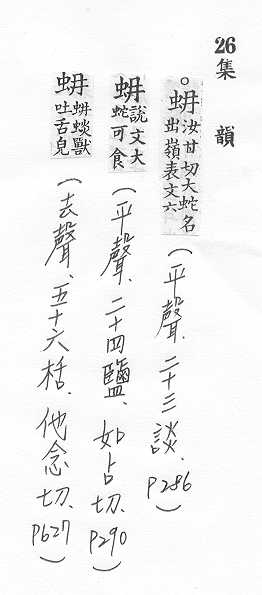 26 集韻
○蚦 汝甘切大蛇名
出嶺表文六
(平聲、二十三談、P286)
蚦 說文大
蛇可食
(平聲、二十四鹽、如占切、P290)
蚦 蚦䗊獸
吐舌皃
(去聲、五十六栝、他念切、P627)